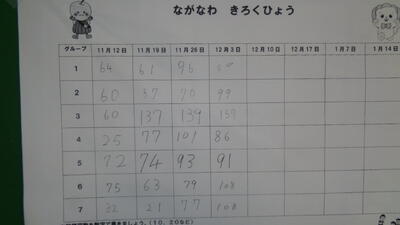 ながなわ きろくひょう
グループ 11月12日 11月19日 11月26日 12月3日 12月10日 12月17日 1月7日 1月14日
1 64 61 96
2 60 37 70 99
3 60 137 139 139
4 25 77 101 86
5 72 74 93 91
6 75 63 79 108
7 32 21 77 108